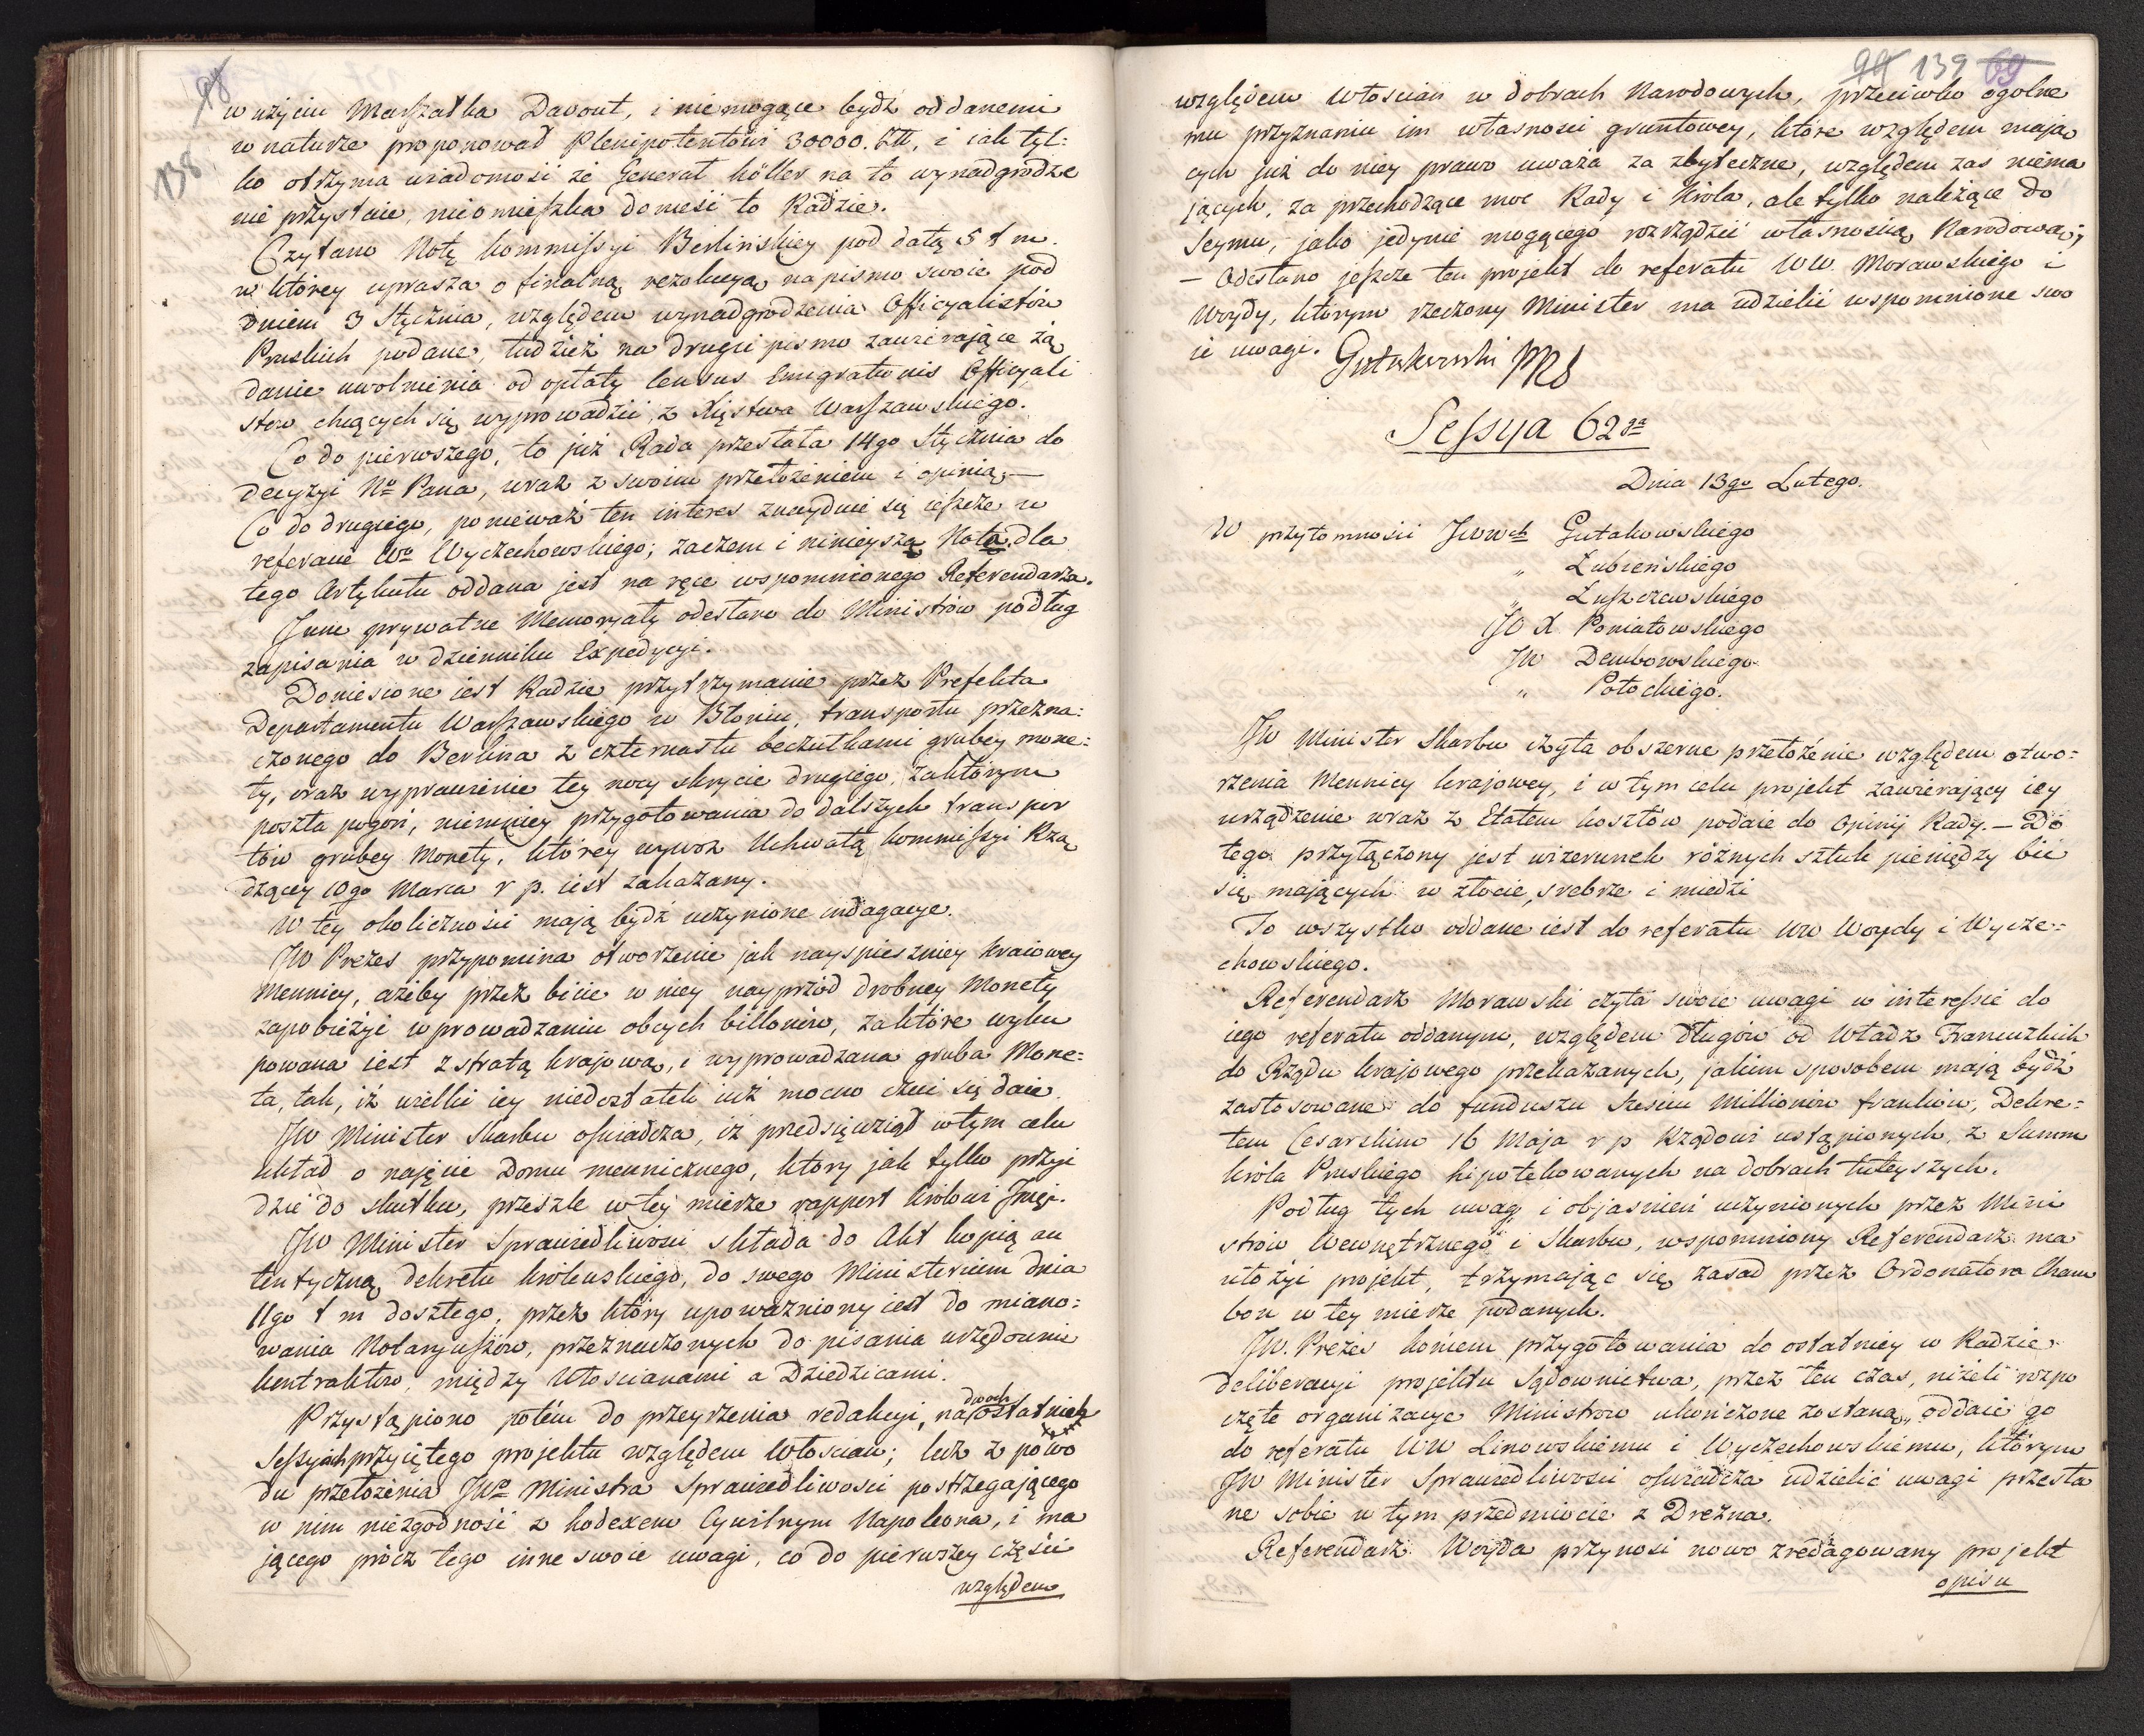 98
138.
w użyciu Marszałka Davout, i niemogące bydź oddanemi
w naturze proponował Plenipotentowi 30000. Ztt, i iak tyl:
ko otrzyma wiadomość że Generał Köller na to wynadgrodze
nie przystaie, nieomieszka donieść to Radzie.
Czytano Notę Kommissyi Berlińskiey pod datą 5 t m.
w którey uprasza o finalną rezolucyą na pismo swoie pod
dniem 3 Stycznia, względem wynadgrodzenia Officyalistów
Pruskich podane, tudzież na drugie pismo zawieraiące żą
danie uwolnienia od opłaty Census Emigrationis Officyali
stow chcących się wyprowadzić z Xięstwa Warszawskiego.
Co do pierwszego, to już Rada przesłała 14go Stycznia do
decyzyi No Pana, wraz z swoim przełożeniem i opinią, —
Co do drugiego, ponieważ ten interes znayduie się ieszcze w
referacie Wo Wyczechowskiego; zaczem i ninieysza Nota dla
tego Artykułu oddana jest na ręce wspomnionego Referendarza.
Inne prywatne Memoryały odesłano do Ministrów podług
zapisania w dzienniku Expedycyi.
Doniesione iest Radzie przytrzymanie przez Prefekta
Departamentu Warszawskiego w Błoniu, transportu przezna:
czonego do Berlina z czternastu beczułkami grubey mone:
ty, oraz wyprawienie tey nocy skrycie drugiego, za którym
poszła pogoń, niemniey przygotowania do dalszych transpor
tów grubey Monety, którey wywoz Uchwałą Kommissyi Rzą
dzącey 10go Marca r p. iest zakazany.
W tey okoliczności mają bydź uczynione indagacye.
JW Prezes przypomina otworzenie jak nayspieszniey kraiowey
Mennicy, ażeby przez bicie w niey nayprzód drobney Monety
zapobieżyć wprowadzaniu obcych billonów, za które wyku
powana iest z stratą krajową, i wyprowadzana gruba Mone:
ta, tak, iż wielki iey niedostatek iuż mocno czuć się daie.
JW Minister Skarbu oświadcza, iż przedsięwziął w tym celu
układ o najęcie Domu mennicznego, który jak tylko przyi
dzie do skutku, przeszle w tey mierze rapport Królowi Jmci.
JW Minister Sprawiedliwości składa do Akt kopią au
tentyczną dekretu królewskiego, do swego Ministerium dnia
11go t m doszłego, przez który upoważniony iest do miano:
wania Notaryuszów, przeznaczonych do pisania urzędownie
kontraktów, między Włościanami a Dziedzicami.
Przystąpiono potém do przeyrzenia redakcyi, na dwóch ostatnich
Sessyach przyiętego projektu względem Włościan; lecz z powo
du przełożenia JWo Ministra Sprawiedliwości postrzegającego
w nim niezgodność z Kodexem Cywilnym Napoleona, i ma
jącego prócz tego inne swoie uwagi, co do pierwszey części
względem
99 139 69
względem Włościan w dobrach Narodowych, przeciwko ogolne
mu przyznaniu im własności gruntowey, które względem mają
cych już do niey prawo uważa za zbyteczne, względem zaś niema
jących, za przechodzące moc Rady i Króla, ale tylko należące do
Seymu, jako jedynie mogącego rozrządzić własnością Narodową;
— Odesłano jeszcze ten projekt do referatu WW. Morawskiego i
Woydy, którym rzeczony Minister ma udzielić wspomnione swo
ie uwagi. Gutakowski PRS
Sessya 62ga
Dnia 13go Lutego.
W przytomności JWWch Gutakowskiego
„ Łubieńskiego
„ Łuszczewskiego
JO X Poniatowskiego
JW Dembowskiego
„ Potockiego.
JW Minister Skarbu czyta obszerne przełożenie względem otwo:
rzenia Mennicy krajowey, i w tym celu projekt zawierający iey
urządzenie wraz z Etatem kosztów podaie do Opinii Rady. — Do
tego przyłączony jest wizerunek różnych sztuk pieniędzy bić
się mających w złocie, srebrze i miedzi
To wszystko oddane iest do referatu WW Woydy i Wycze:
chowskiego.
Referendarz Morawski czyta swoie uwagi w interessie do
iego referatu oddanym, względem Długów od Władz Francuzkich
do Rządu krajowego przekazanych, jakim sposobem mają bydź
zastosowane do funduszu sześciu Millionów franków, Dekre:
tem Cesarskim 16 Maja r p Rządowi ustąpionych, z Summ
Króla Pruskiego hipotekowanych na dobrach tuteyszych.
Podług tych uwag i objaśnień uczynionych przez Mini
strów Wewnętrznego i Skarbu, wspomniony Referendarz ma
ułożyć projekt, trzymając się zasad przez Ordonatora Cham
bon w tey mierze podanych.
JW. Prezes końcem przygotowania do ostatniey w Radzie
deliberacyi projektu Sądownictwa, przez ten czas, niżeli rozpo
częte organizacye Ministrow ukończone zostaną, oddaie go
do referatu WW Linowskiemu i Wyczechowskiemu, którym
JW Minister Sprawiedliwości oświadcza udzielić uwagi przesła
ne sobie w tym przedmiocie z Drezna.
Referendarz Woyda przynosi nowo zredagowany projekt
opisu